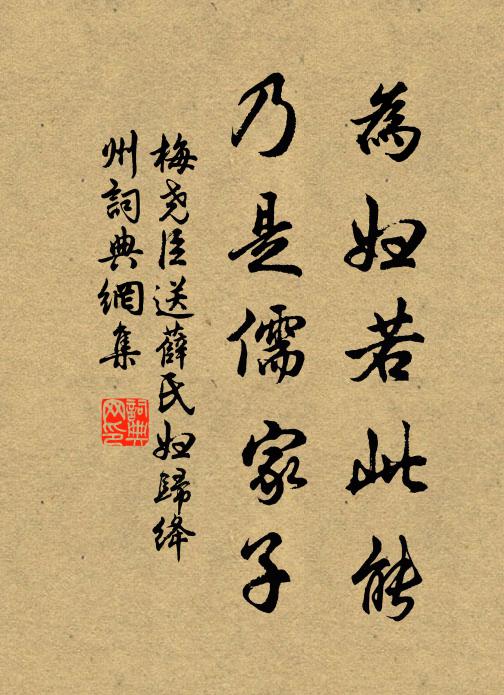 為婦若此能
乃是儒家子
梅堯臣送薛氏婦歸絳
州詞典網集
詞典网印